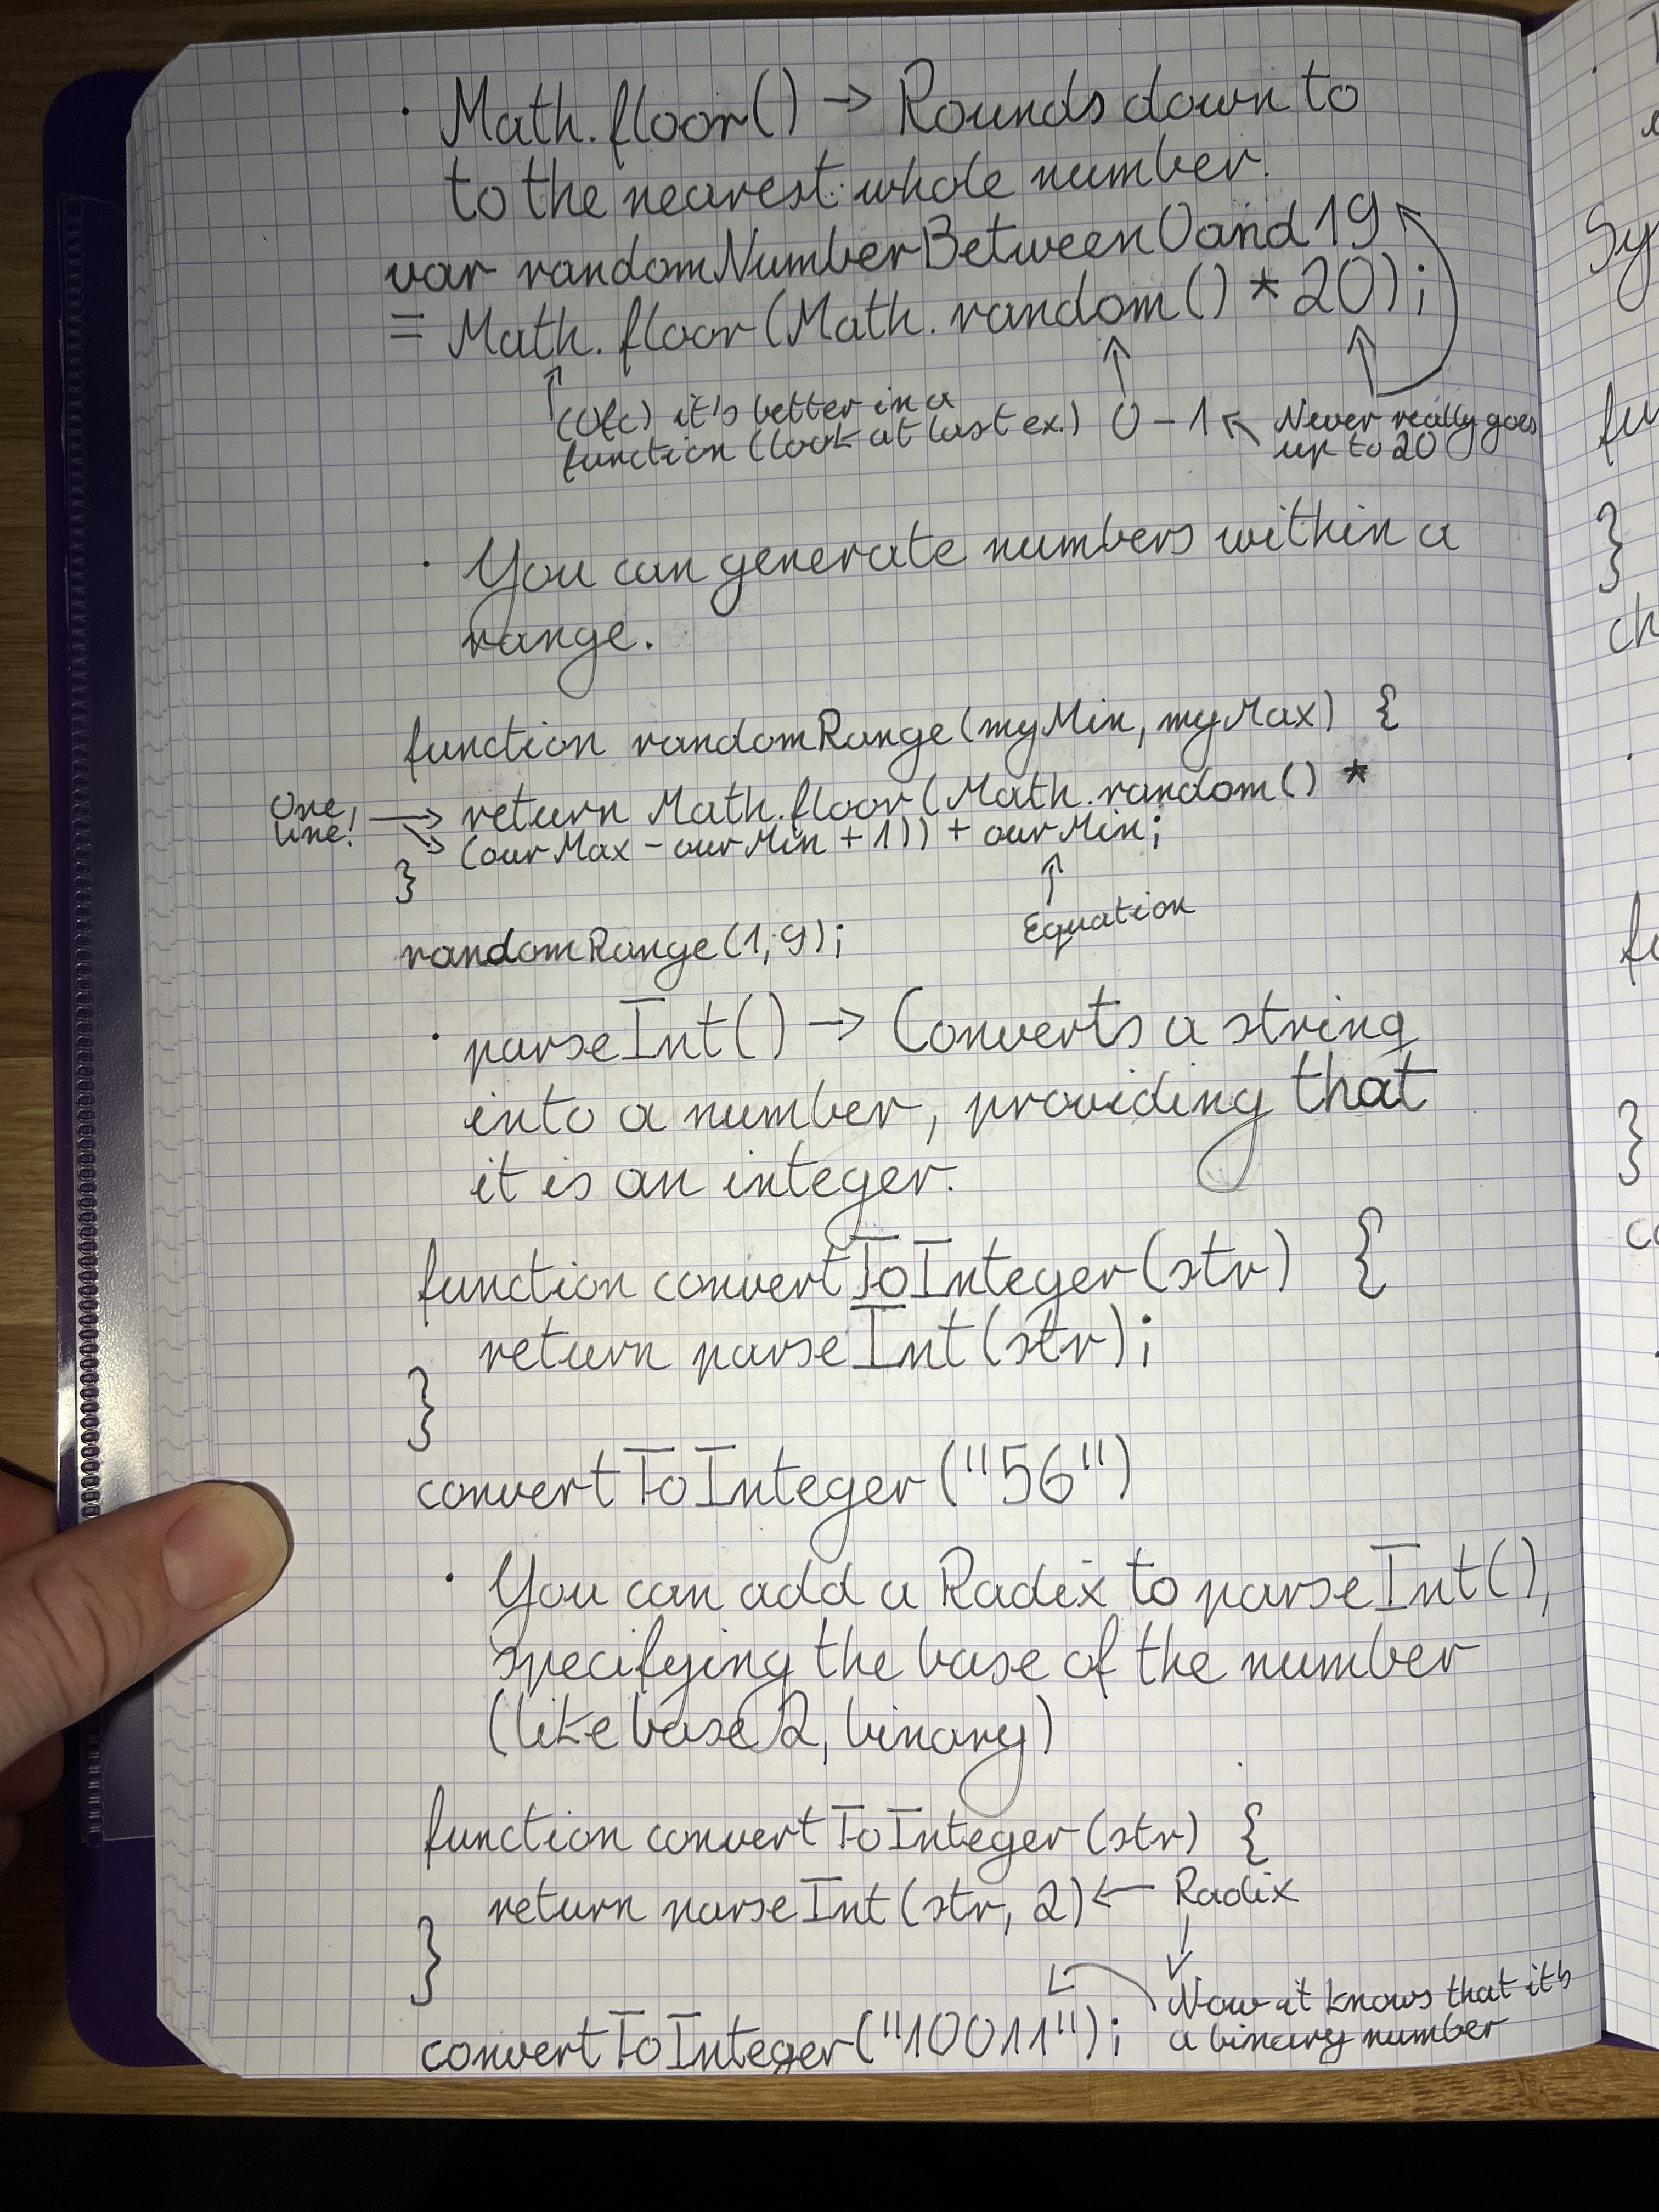 · Math.floor() → Rounds down to
to the nearest whole number.
var randomNumberBetween0and19
= Math.floor(Math.random() * 20);
(Ofc) it's better in a
function (look at last ex.)
0 - 1
Never really goes
up to 20
· You can generate numbers within a
range.
function randomRange(myMin, myMax) {
One
line!
return Math.floor(Math.random() *
(ourMax - ourMin + 1)) + ourMin;
}
Equation
randomRange(1, 9);
· parseInt() → Converts a string
into a number, providing that
it is an integer.
function convertToInteger(str) {
return parseInt(str);
}
convertToInteger("56")
· You can add a Radix to parseInt(),
specifying the base of the number
(like base 2, binary)
function convertToInteger(str) {
return parseInt(str, 2) ← Radix
}
Now it knows that it's
a binary number
convertToInteger("10011");
Sy
fu
}
ch
}